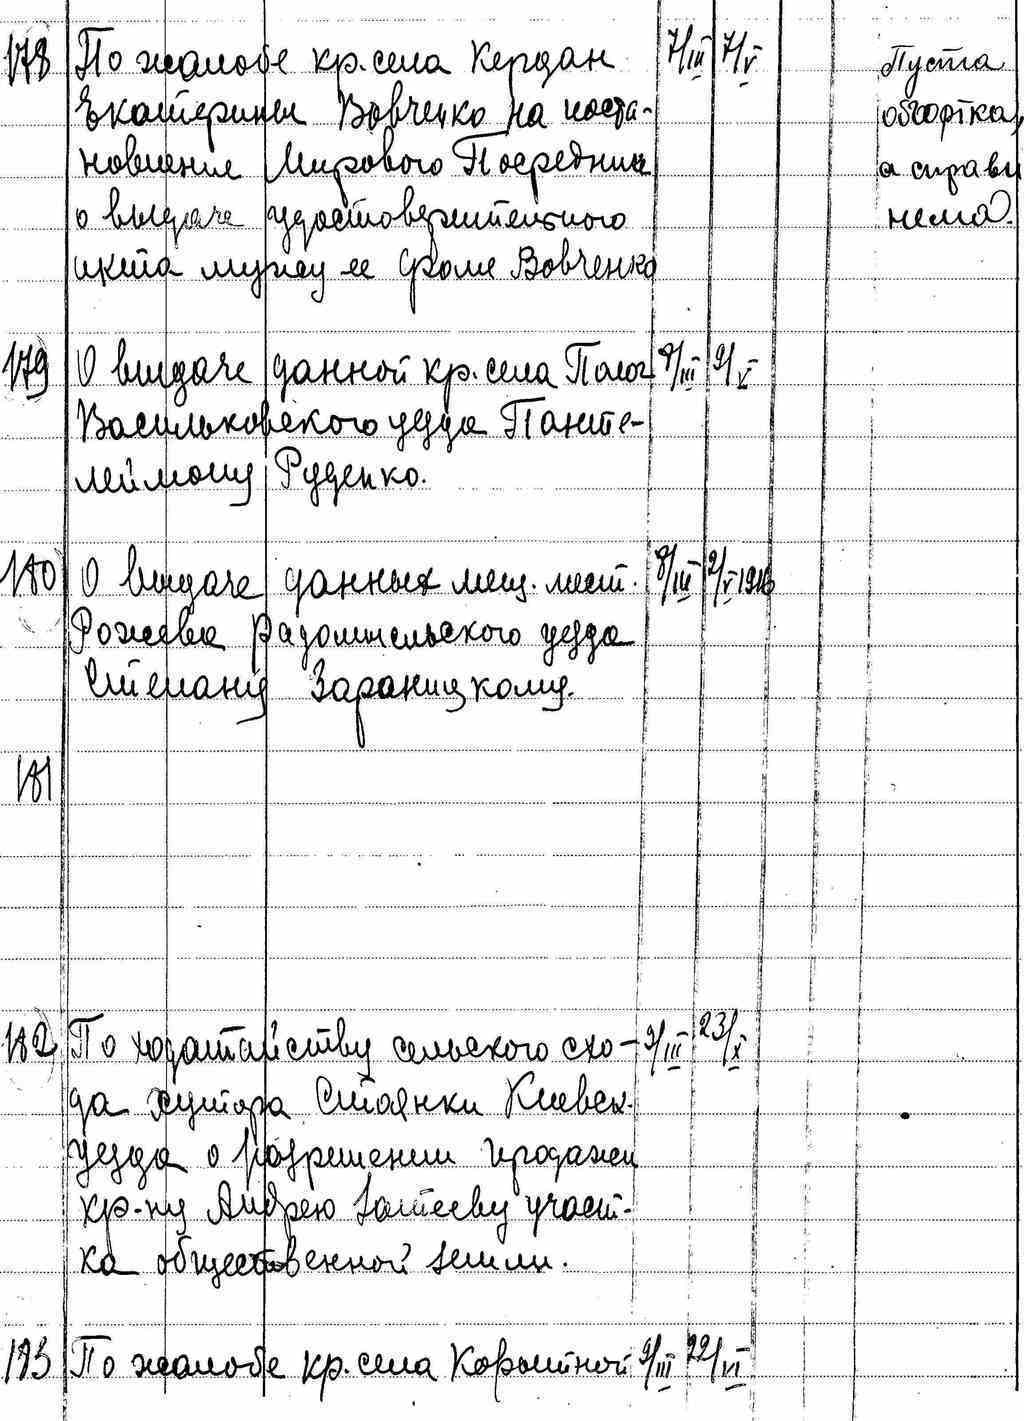 178 По жалобе кр. села Кердан 7/III 7/V Пуста
Екатерины Вовченко на поста- обгортка,
новление Мирового Посредника а справи
о выдаче удостоверительного нема.
акта мужу ее Фоме Вовченко
179 О выдаче данной кр. села Полог 8/III 9/V
Васильковского уезда Панте-
леймону Руденко.
180 О выдаче данных мещ. мест. 8/III 2/V 1916
Рожева Радомысльского уезда
Степану Зараницкому.
181
182 По ходатайству сельского схо- 9/III 23/X
да хутора Стоянки Киевск.
уезда о разрешении продажи
кр-ну Андрею участ-
ка общественной земли.
183 По жалобе кр. села Корытной 9/III 22/VI